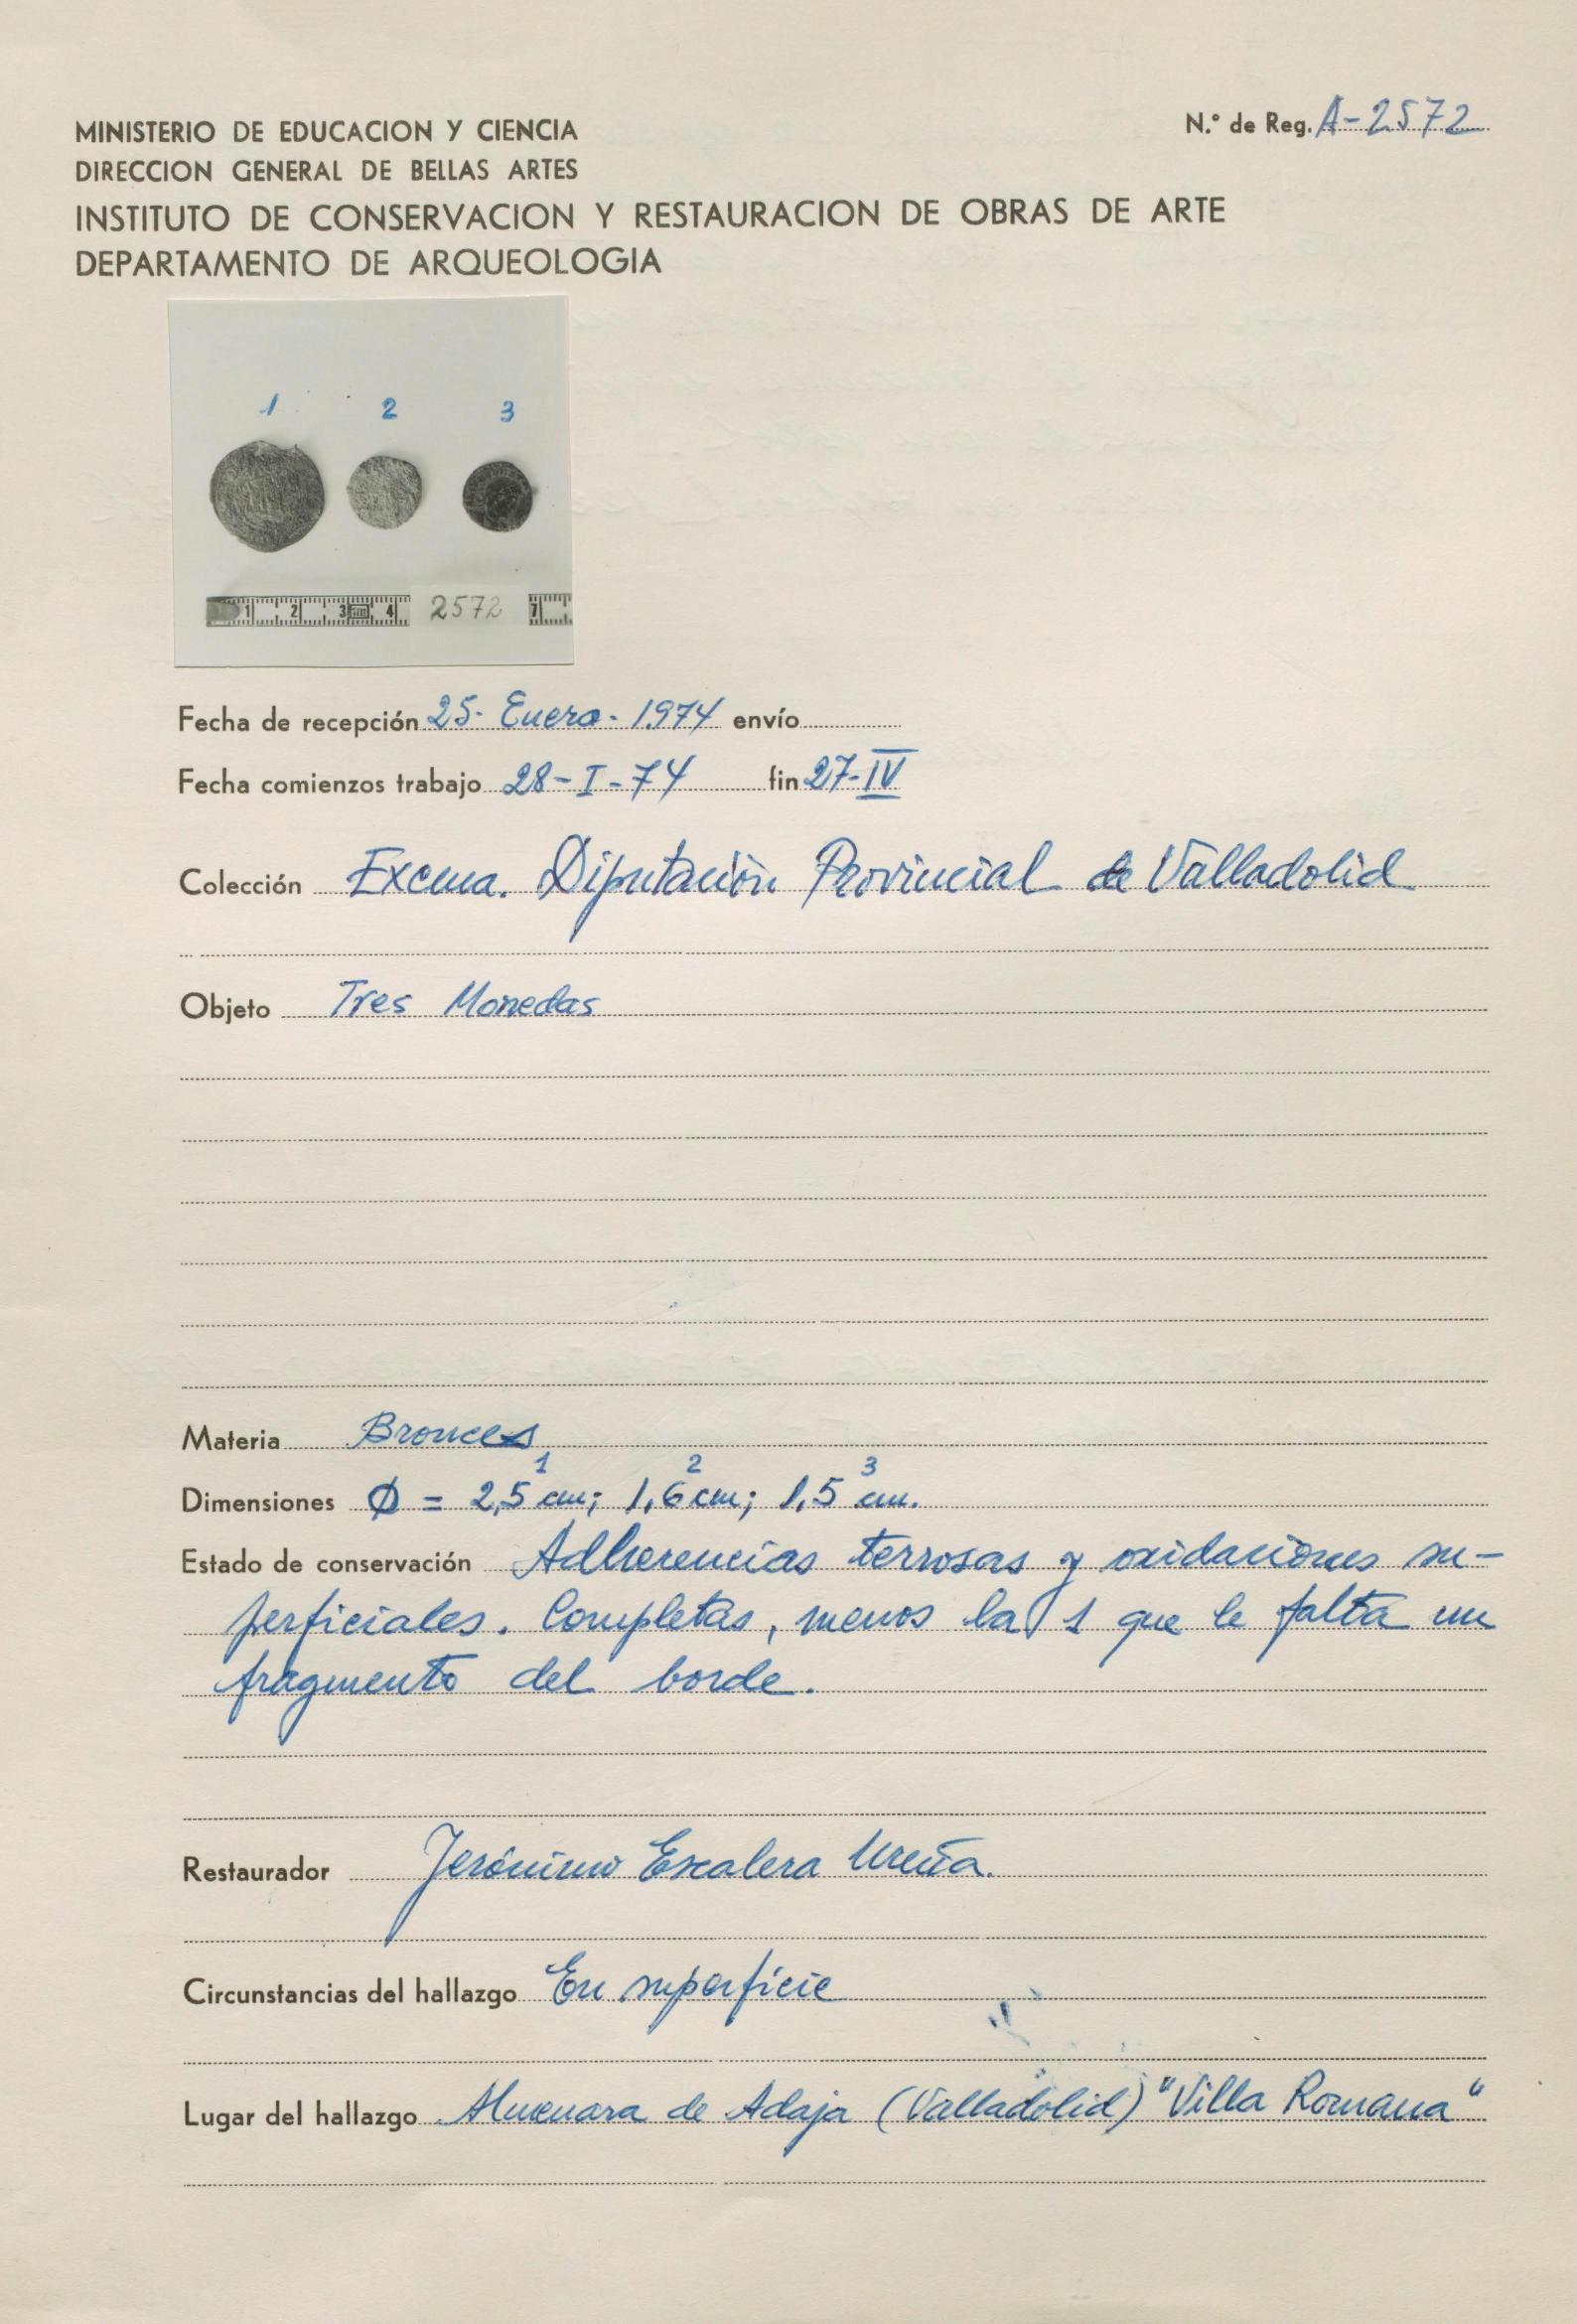 N.º de Reg. A-2572
MINISTERIO DE EDUCACION Y CIENCIA
DIRECCION GENERAL DE BELLAS ARTES
INSTITUTO DE CONSERVACION Y RESTAURACION DE OBRAS DE ARTE
DEPARTAMENTO DE ARQUEOLOGIA
1 2 3
1 2 3 cm 4 2572 7
Fecha de recepción 25-Enero-1974 envío
Fecha comienzos trabajo 28-I-74 fin 27-IV
Colección Excma. Diputación Provincial de Valladolid
Objeto Tres Monedas
Materia Bronces
1 2 3
Dimensiones Ø = 2,5 cm; 1,6 cm; 1,5 cm.
Estado de conservación Adherencias terrosas y oxidaciones su-
perficiales. Completas, menos la 1 que le falta un
fragmento del borde.
Restaurador Jerónimo Escalera Ureña.
Circunstancias del hallazgo En superficie
Lugar del hallazgo Almenara de Adaja (Valladolid) "Villa Romana"